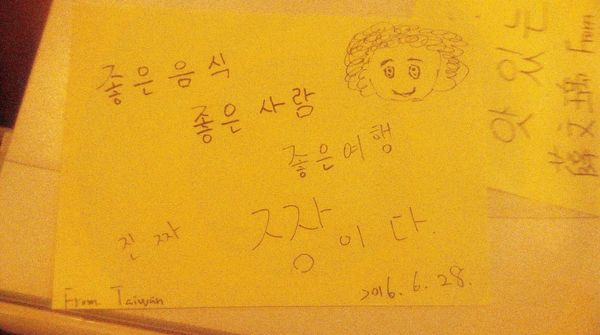 좋은 음식
좋은 사람
좋은 여행
진짜 짱이다.
From Taiwan
2016. 6. 28.
From